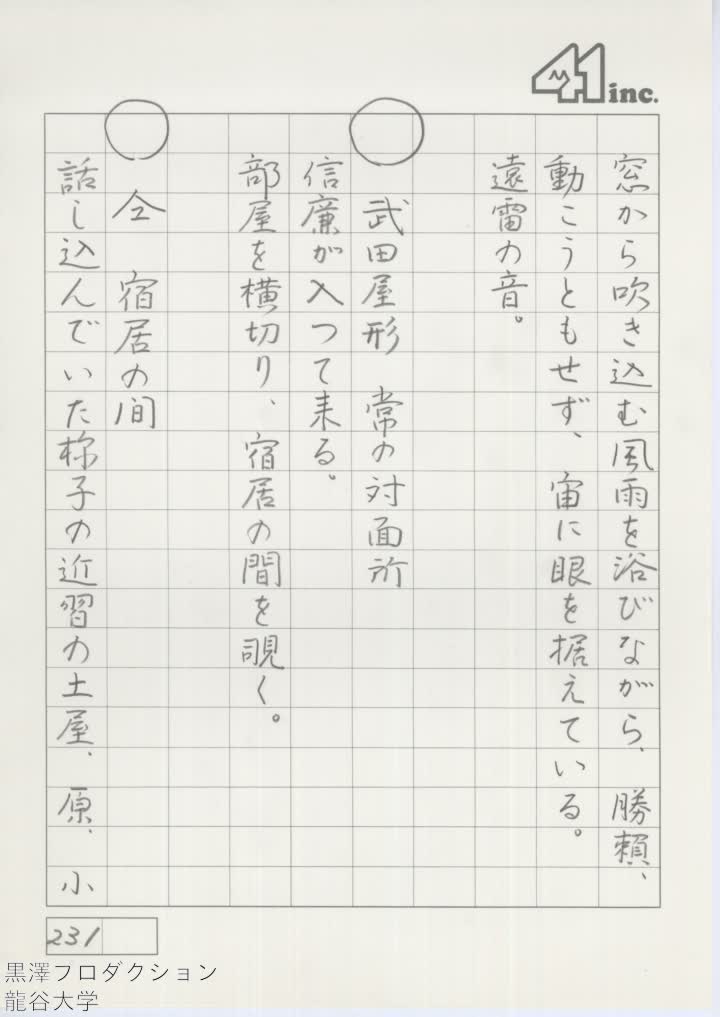 41 inc.
窓から吹き込む風雨を浴びながら、勝頼、
動こうともせず、宙に眼を据えている。
遠雷の音。
〇 武田屋形 常の対面所
信廉が入つて来る。
部屋を横切り、宿居の間を覗く。
〇 仝 宿居の間
話し込んでいた様子の近習の土屋、原、小
231
黒澤プロダクション
龍谷大学